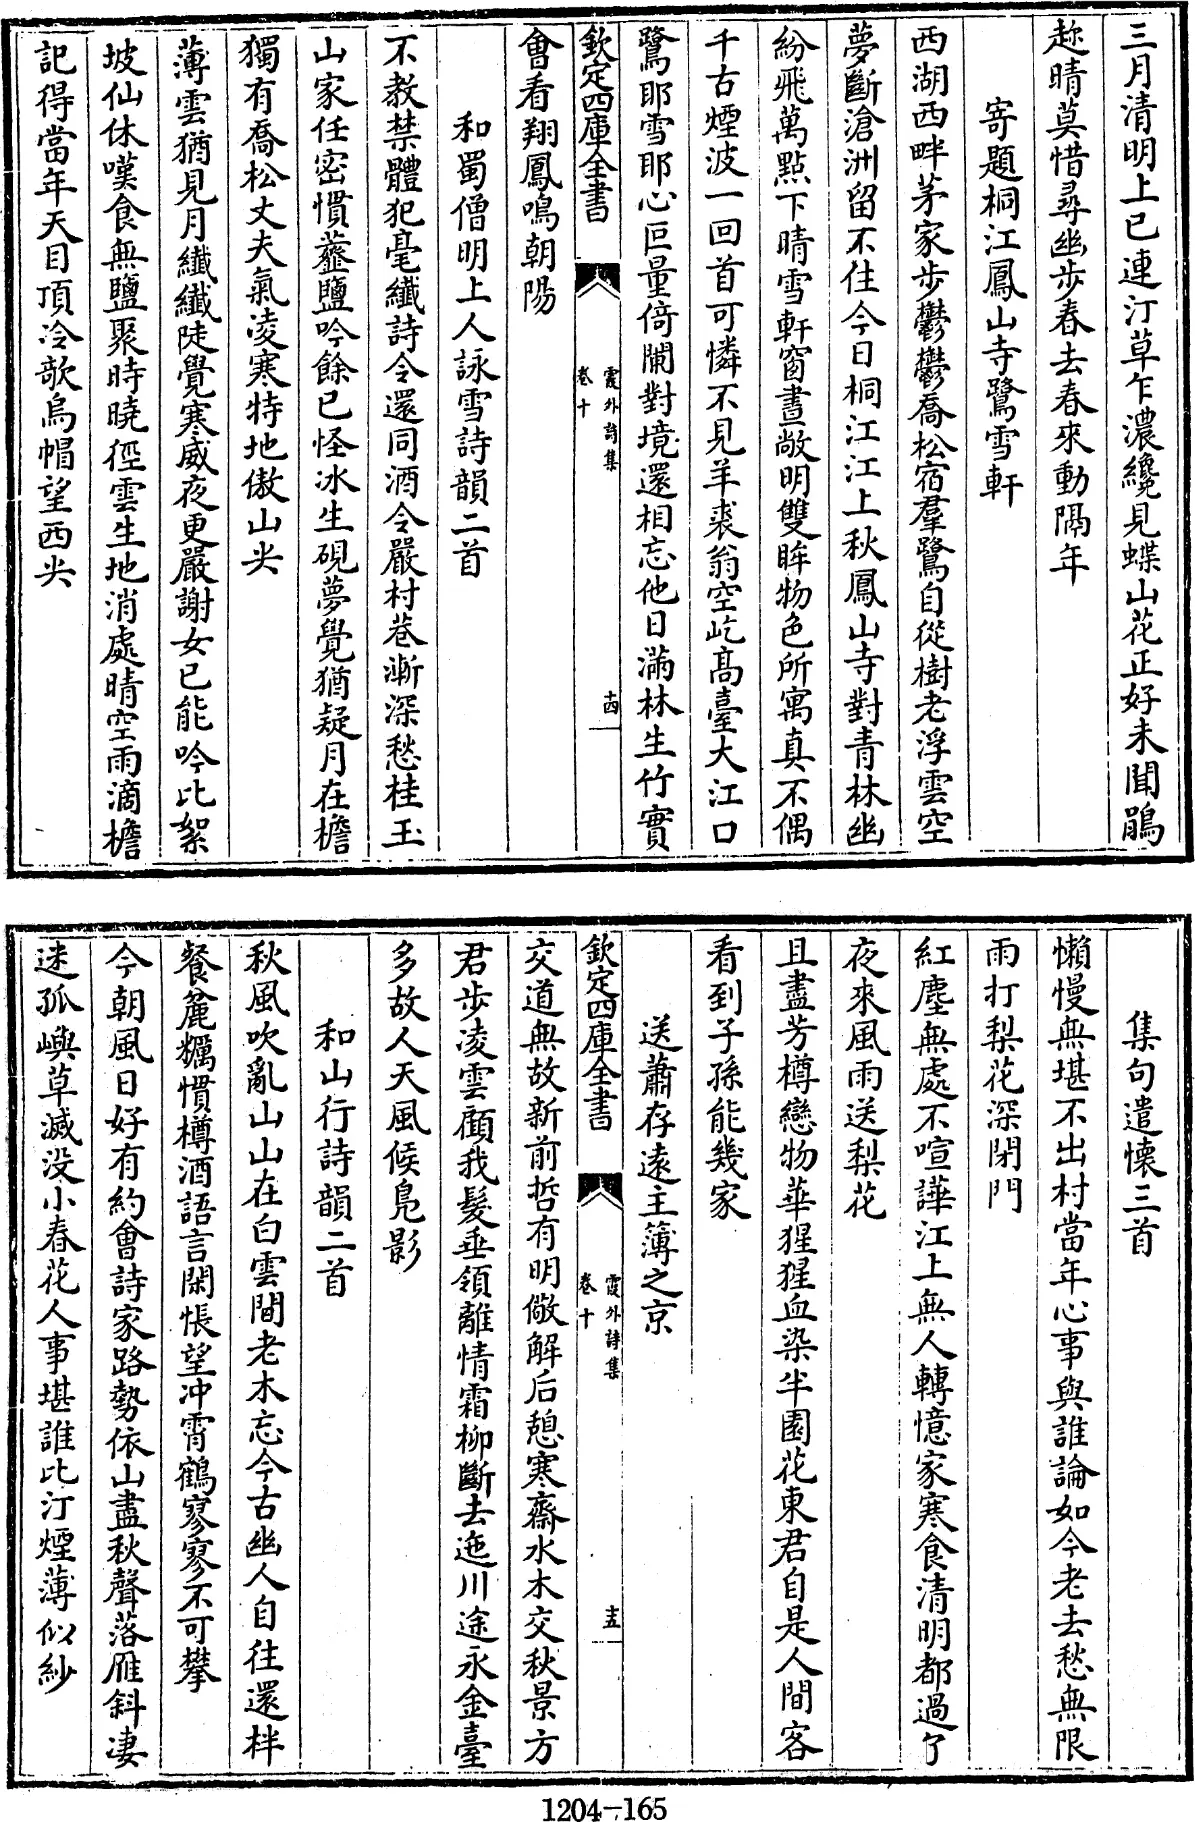 三月清明上巳連汀草乍濃纔見蝶山花正好未聞鵑
趂晴莫惜尋幽步春去春來動隔年
寄題桐江鳳山寺鷺雪軒
西湖西畔茅家步鬱鬱喬松宿羣鷺自從樹老浮雲空
夢斷滄洲留不住今日桐江江上秋鳳山寺對青林幽
紛飛萬點下晴雪軒窗晝敞明雙眸物色所寓真不偶
千古煙波一回首可憐不見羊裘翁空屹髙臺大江口
鷺耶雪耶心叵量倚闌對境還相忘他日滿林生竹實
欽定四庫全書
霞外詩集
卷十
十四
會看翔鳳鳴朝陽
和蜀僧明上人詠雪詩韻二首
不教禁體犯毫纖詩令還同酒令嚴村巷漸深愁桂玉
山家任密慣虀鹽吟餘已怪冰生硯夢覺猶疑月在檐
獨有喬松丈夫氣凌寒特地傲山尖
薄雲猶見月纖纖陡覺寒威夜更嚴謝女已能吟比絮
坡仙休嘆食無鹽聚時曉徑雲生地消處晴空雨滴檐
記得當年天目頂冷欹烏帽望西尖
集句遣懷三首
懶慢無堪不出村當年心事與誰論如今老去愁無限
雨打梨花深閉門
紅塵無處不喧譁江上無人轉憶家寒食清明都過了
夜來風雨送梨花
且盡芳樽戀物華猩猩血染半園花東君自是人間客
看到子孫能幾家
送蕭存遠主簿之京
交道無故新前哲有明儆解后憩寒齋水木交秋景方
欽定四庫全書
霞外詩集
卷十
十五
君步凌雲顧我髮垂領離情霜柳斷去迤川途永金臺
多故人天風候鳧影
和山行詩韻二首
秋風吹亂山山在白雲間老木忘今古幽人自往還柈
餐麄糲慣樽酒語言閑悵望冲霄鶴寥寥不可攀
今朝風日好有約會詩家路勢依山盡秋聲落雁斜凄
迷孤嶼草滅没小春花人事堪誰比汀煙薄似紗
1204-165